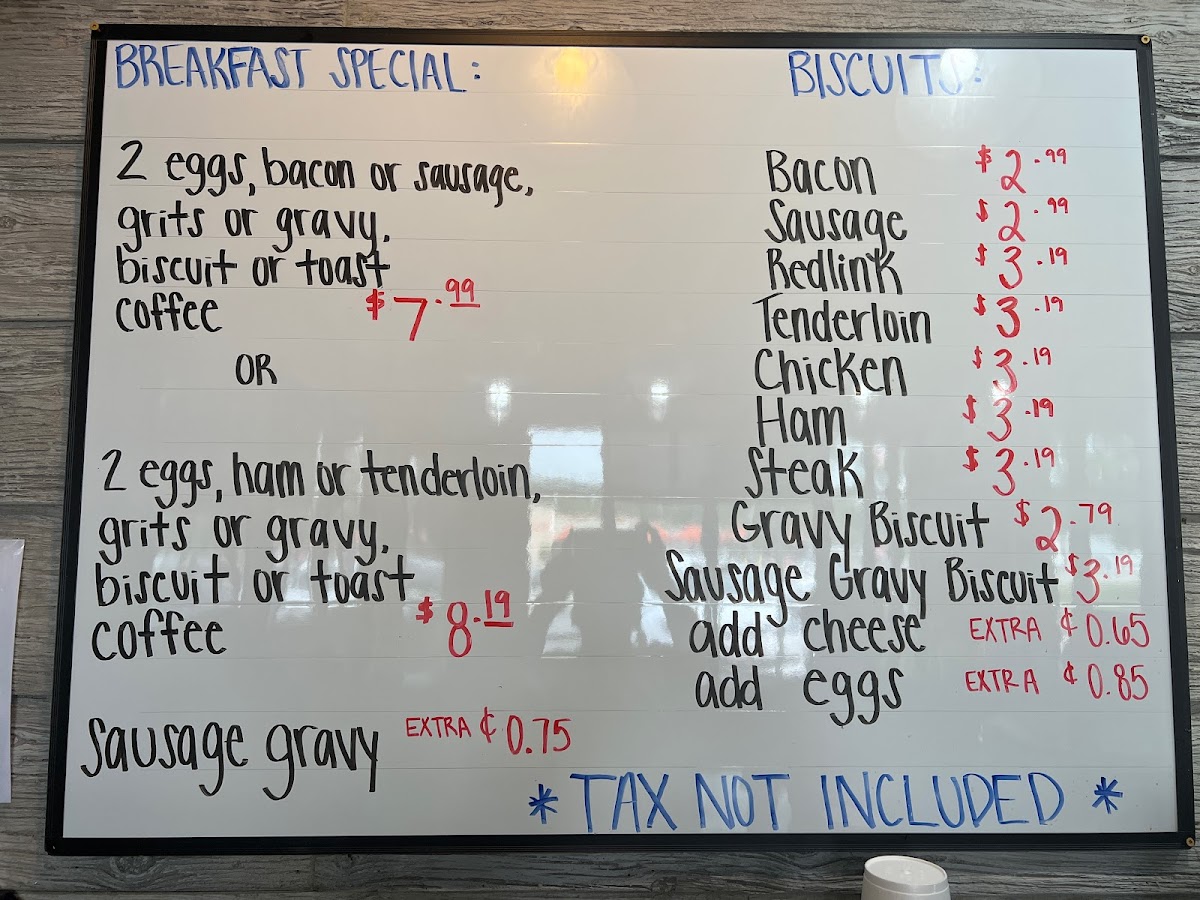 BREAKFAST SPECIAL:
2 eggs, bacon or sausage,
grits or gravy,
biscuit or toast
coffee $7.99
OR
2 eggs, ham or tenderloin,
grits or gravy,
biscuit or toast
coffee $8.19
Sausage gravy EXTRA ¢0.75
BISCUITS:
Bacon $2.99
Sausage $2.99
Redlink $3.19
Tenderloin $3.19
Chicken $3.19
Ham $3.19
Steak $3.19
Gravy Biscuit $2.79
Sausage Gravy Biscuit $3.19
add cheese EXTRA ¢0.65
add eggs EXTRA ¢0.85
* TAX NOT INCLUDED *